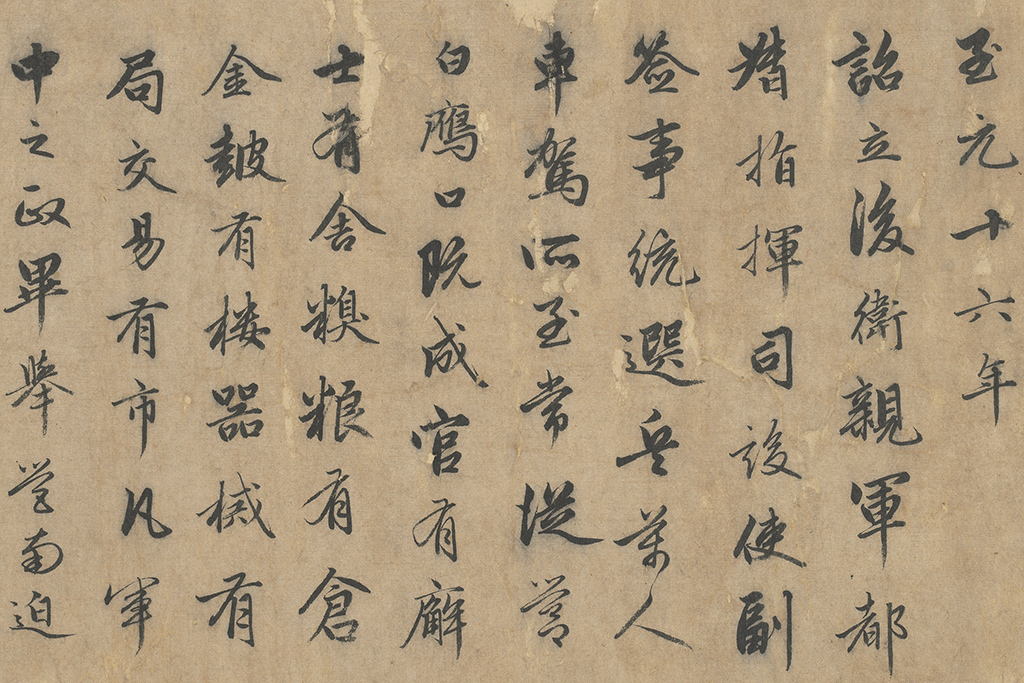 至元十六年
詔立後衛親軍都
指揮司設使副
簽事統選兵萬人
車駕所至常從營
白鴈口既成官有廨
士有舍糗粮有倉
金皷有楼器械有
局交易有市凡軍
中之政畢舉營南迫